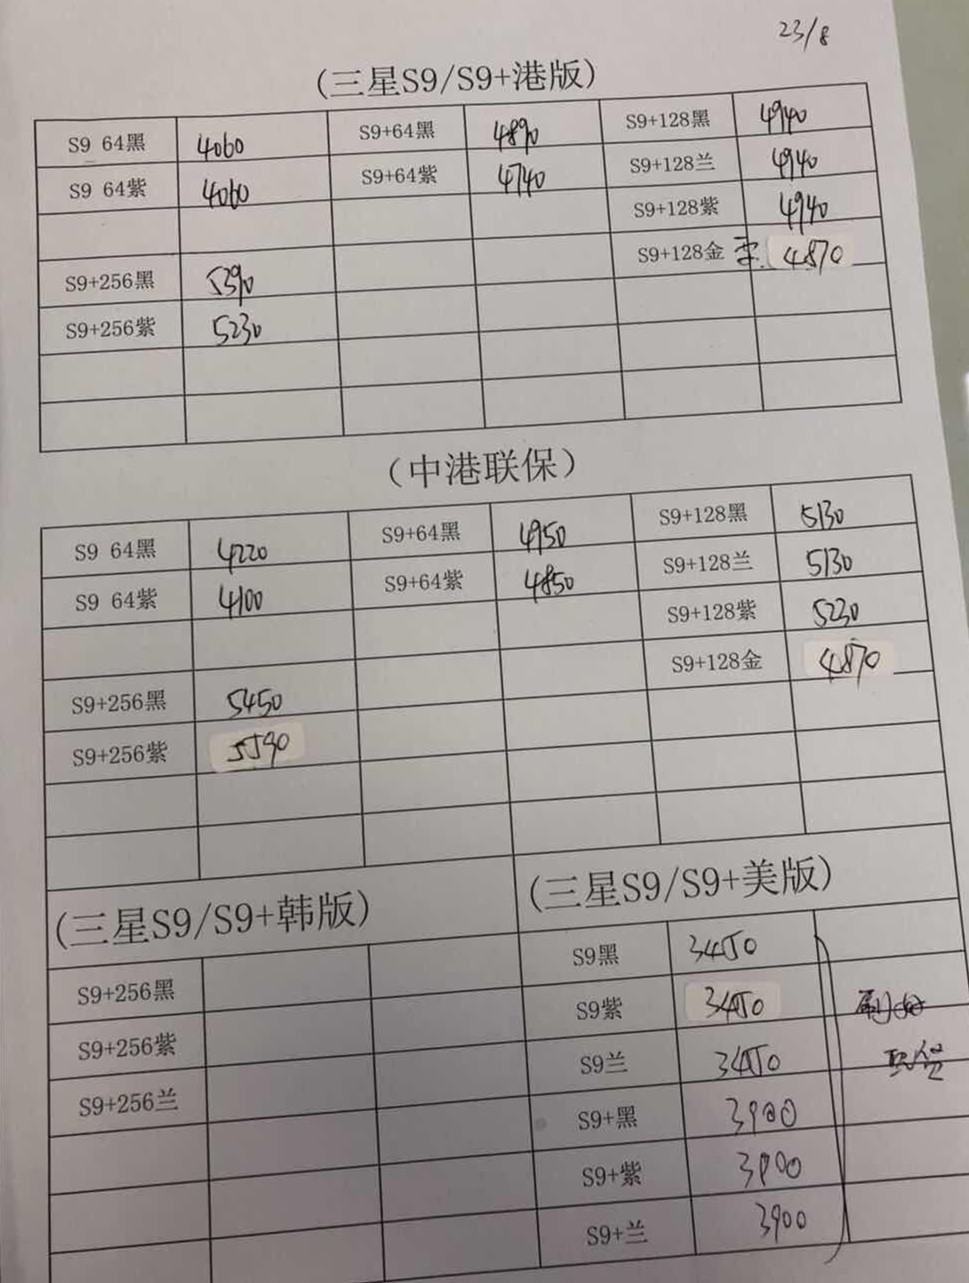 23/8
(三星S9/S9+港版)
S9 64黑 4060 S9+64黑 4890 S9+128黑 4940
S9 64紫 4060 S9+64紫 4740 S9+128兰 4940
S9+128紫 4940
S9+128金 4870
S9+256黑 5390
S9+256紫 5230
(中港联保)
S9 64黑 4220 S9+64黑 4950 S9+128黑 5130
S9 64紫 4100 S9+64紫 4850 S9+128兰 5130
S9+128紫 5230
S9+128金 4870
S9+256黑 5450
S9+256紫 5590
(三星S9/S9+韩版)
S9+256黑
S9+256紫
S9+256兰
(三星S9/S9+美版)
S9黑 3450
S9紫 3450
S9兰 3450
S9+黑 3900
S9+紫 3900
S9+兰 3900